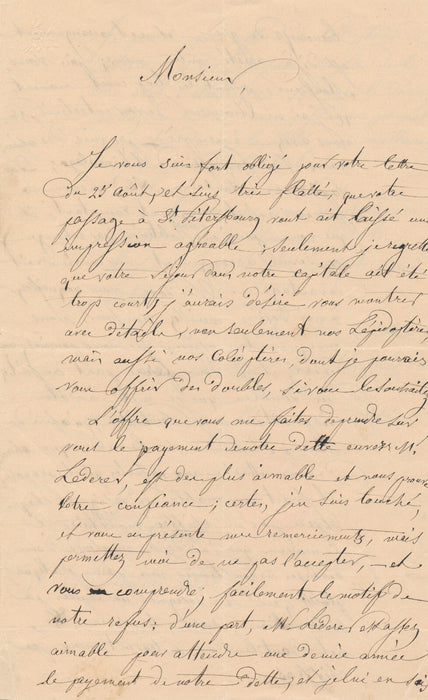 Monsieur,
Je vous suis fort obligé pour votre lettre
du 25 Août, et suis très flatté, que votre
passage à St Pétersbourg vous ait laissé une
impression agreable; seulement je regrette
que votre séjour dans notre capitale ait été
trop court; j'aurais désiré vous montrer
avec détails, non seulement nos Lépidoptères,
mais aussi nos coléoptères, dont je pourrais
vous offrir des doubles, si vous le souhaitez
L'offre que vous me faites de prendre sur
vous le payement de notre dette envers Mr
Lederer, est des plus aimable et nous prouve
votre confiance; certes, j'en suis touché,
et vous en présente mes remerciements, mais
permettez moi de ne pas l'accepter, et
vous comprendrez facilement le motif de
notre refus: d'une part, Mr Lederer est assez
aimable pour attendre une demie année
le payement de notre dette; et je lui en suis